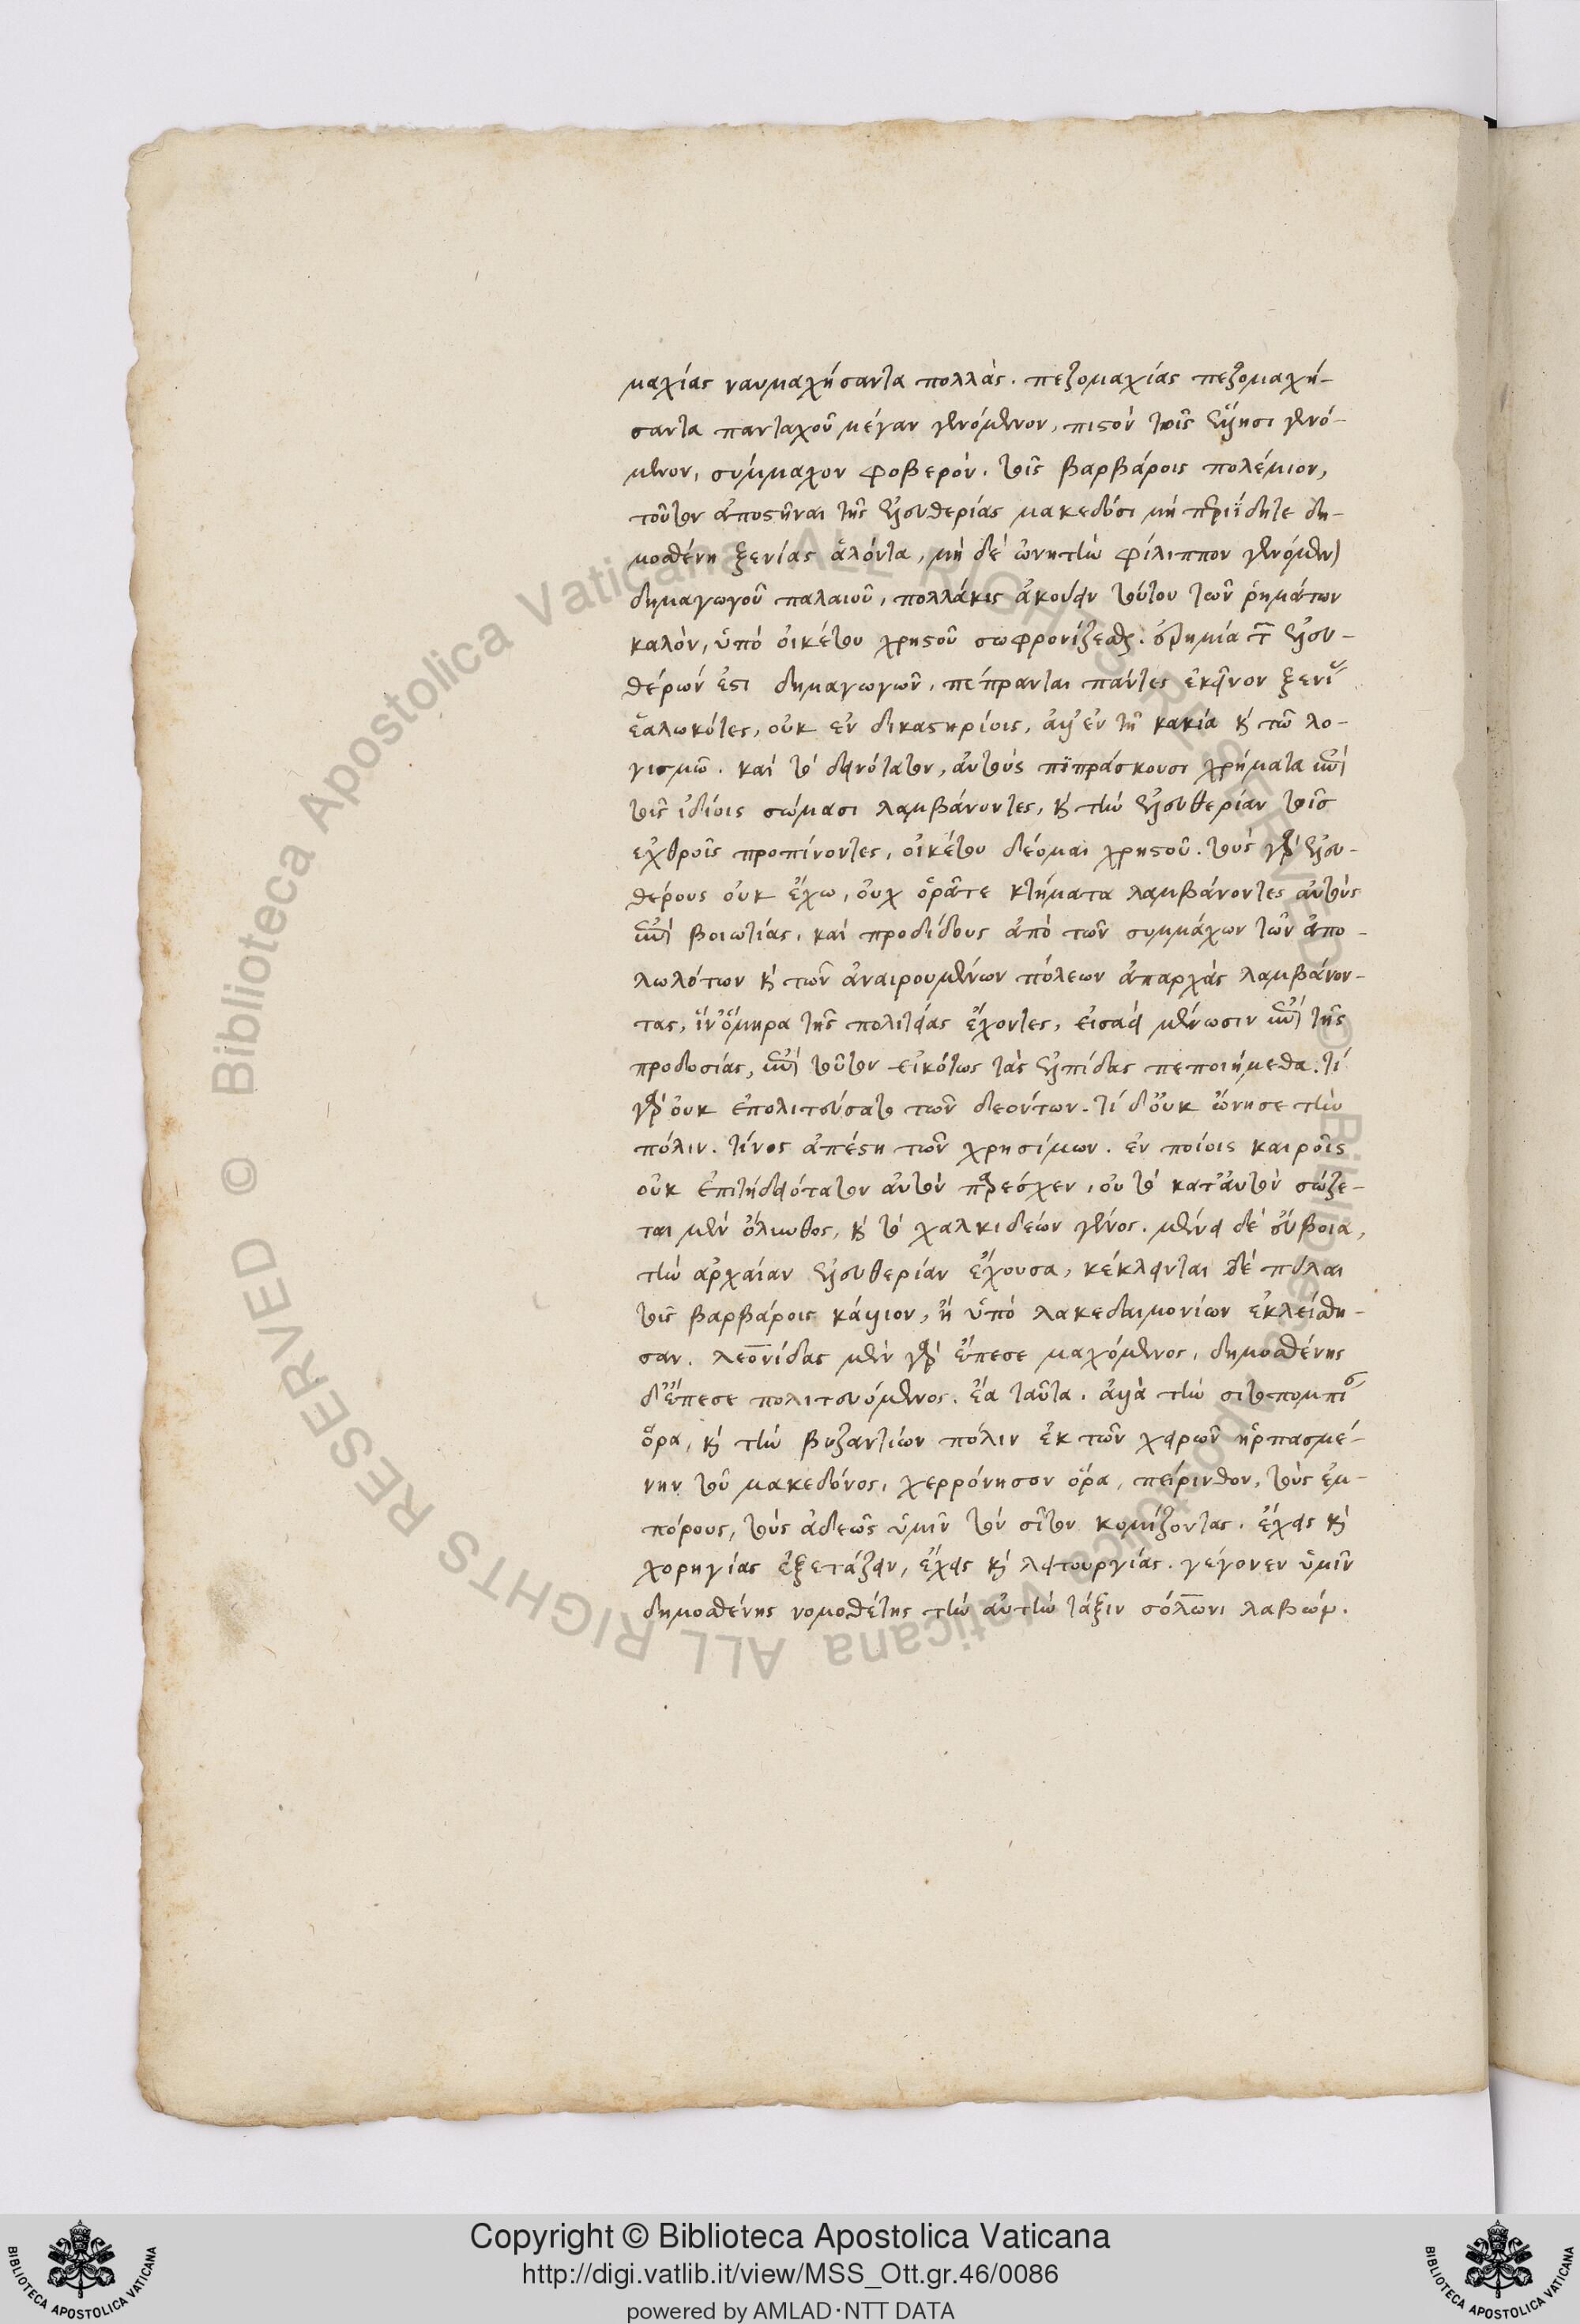 μαχίας ναυμαχήσαντα πολλάς. πεζομαχίας πεζομαχή-
σαντα πανταχοῦ μέγαν γενόμενον, πιστὸν τοῖς ἕλλησι γενό-
μενον, σύμμαχον φοβερόν. τοῖς βαρβάροις πολέμιον,
τοῦτον ἀποστῆναι τῆς ἐλευθερίας μακεδόσι μὴ περιΐδητε δη-
μοσθένη ξενίας ἁλόντα, μὴ δὲ ὠνητὴν φίλιππον γενόμενον
δημαγωγοῦ παλαιοῦ, πολλάκις ἀκούειν τούτου τῶν ῥημάτων
καλὸν, ὑπὸ οἰκέτου χρηστοῦ σωφρονίζεσθαι. ἐρημία τῶν ἐλευ-
θέρων ἐστι δημαγωγῶν, πέπρανται πάντες ἐκεῖνον ξενίας
ἑαλωκότες, οὐκ ἐν δικαστηρίοις, ἀλλ' ἐν τῆ κακία καὶ τῶ λο-
γισμῶ. καὶ τὸ δεινότατον, αὐτοὺς πϊπράσκουσι χρήματα ἐπὶ
τοῖς ἰδίοις σώμασι λαμβάνοντες, καὶ τὴν ἐλευθερίαν τοῖς
ἐχθροῖς προπίνοντες, οἰκέτου δέομαι χρηστοῦ. τοὺς γὰρ ἐλευ-
θέρους οὐκ ἔχω, οὐχ ὁρᾶτε κτήματα λαμβάνοντες αὐτοὺς
ἐπὶ βοιωτίας, καὶ προδίδους ἀπὸ τῶν συμμάχων τῶν ἀπο-
λωλότων καὶ τῶν ἀναιρουμένων πόλεων ἀπαρχὰς λαμβάνον-
τας, ἵν' ὅμηρα τῆς πολιτείας ἔχοντες, εἰσαεὶ μένωσιν ἐπὶ τῆς
προδοσίας, ἐπὶ τοῦτον εἰκότως τὰς ἐλπίδας πεποιήμεθα. τί
γὰρ οὐκ ἐπολιτεύσατο τῶν δεόντων. τί δ' οὐκ ὤνησε τὴν
πόλιν. τίνος ἀπέστη τῶν χρησίμων. ἐν ποίοις καιροῖς
οὐκ ἐπιτήδειότατον αὐτὸν παρέσχεν, οὐ τὸ κατ' αὐτὸν σώζε-
ται μὲν ὄλυνθος, καὶ τὸ χαλκιδεών γένος. μένει δὲ εὔβοια,
τὴν ἀρχαίαν ἐλευθερίαν ἔχουσα, κέκλεινται δὲ πύλαι
τοῖς βαρβάροις κάλλιον, ἢ ὑπὸ λακεδαιμονίων ἐκλείσθη-
σαν. λεονίδας μὲν γὰρ ἔπεσε μαχόμενος, δημοσθένης
δ' ἔπεσε πολιτευόμενος. ἔα ταῦτα. ἀλλὰ τὴν σιτοπομπίαν
ὅρα, καὶ τὴν βυζαντίων πόλιν ἐκ τῶν χειρῶν ἡρπασμέ-
νην τοῦ μακεδόνος, χερρόνησον ὅρα, πείρινθον, τοὺς ἐμ-
πόρους, τοὺς ἀδεῶς ὑμῖν τὸν σῖτον κομίζοντας. ἔχεις καὶ
χορηγίας ἐξετάζειν, ἔχεις καὶ λειτουργίας. γέγονεν ὑμῖν
δημοσθένης νομοθέτης τὴν αὐτὴν τάξιν σόλωνι λαβὼν.
Copyright © Biblioteca Apostolica Vaticana
http://digi.vatlib.it/view/MSS_Ott.gr.46/0086
powered by AMLAD·NTT DATA
© Biblioteca Apostolica Vaticana ALL RIGHTS RESERVED
© Biblioteca Apostolica Vaticana ALL RIGHTS RESERVED
BIBLIOTECA APOSTOLICA VATICANA
BIBLIOTECA APOSTOLICA VATICANA